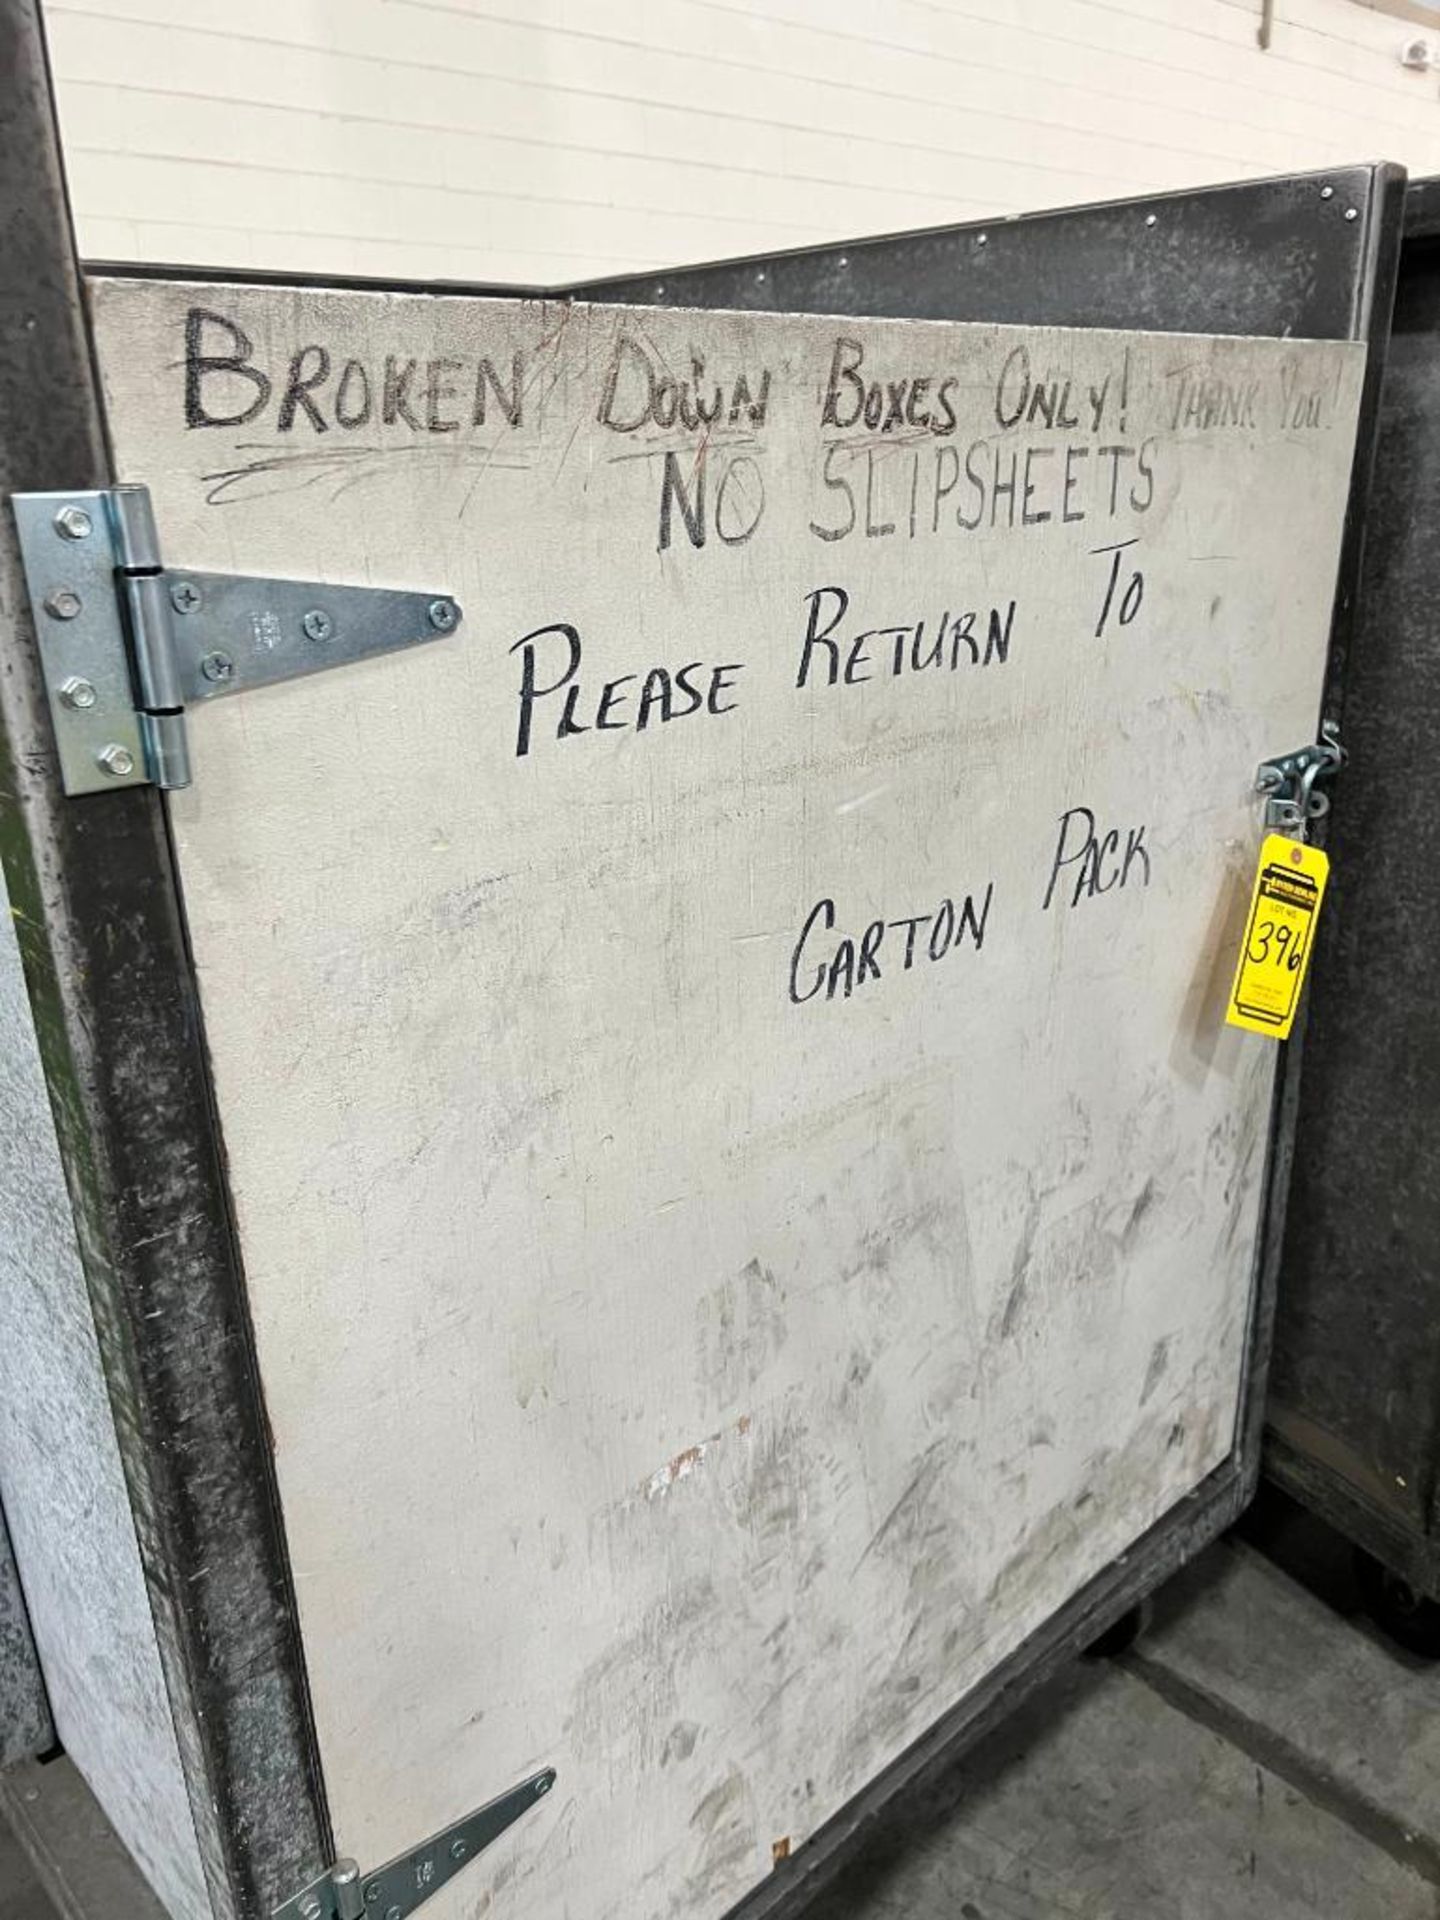 BROKEN DOWN BOXES ONLY! THANK YOU!
NO SLIPSHEETS
PLEASE RETURN TO
CARTON PACK
LOT NO.
396